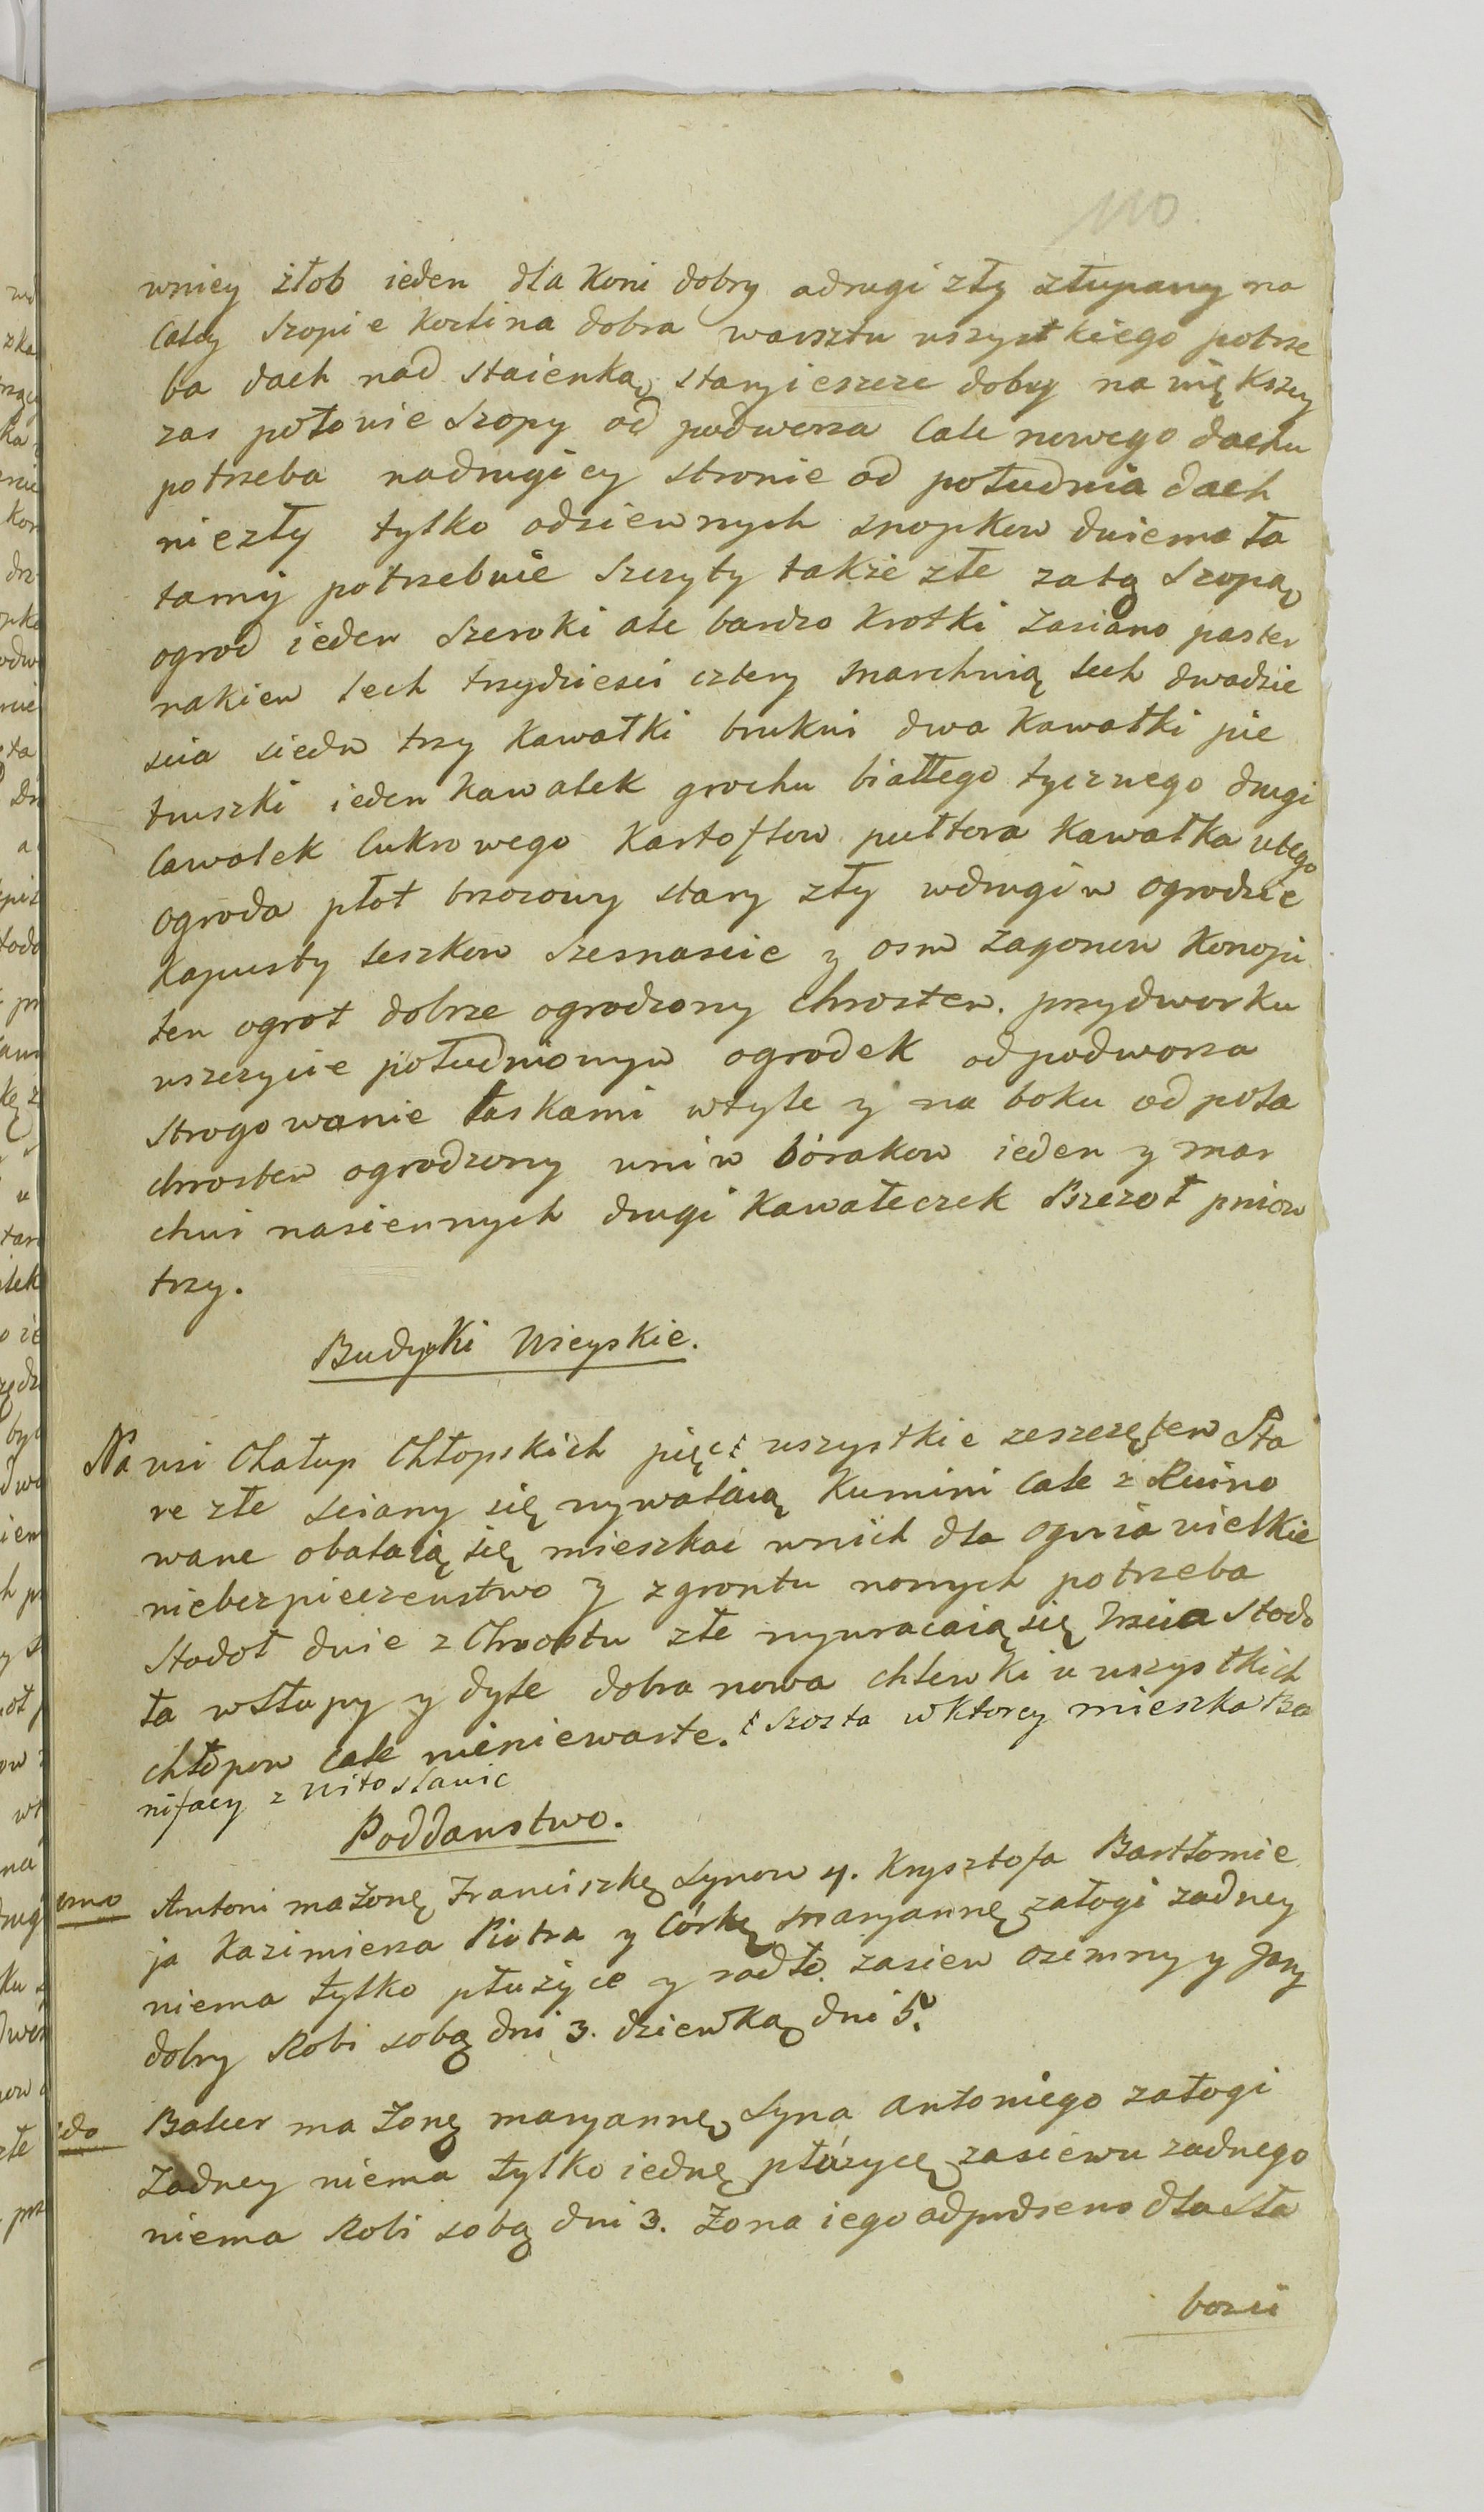 110.
wniey żłob ieden dla koni dobry adrugi zły złupany na
Całey Szopie kozlina dobra warsztu wszystkiego potrze
ba dach nad staienką stary ieszcze dobry na większey
zas połowie Szopy od podworza Cale nowego dachu
potrzeba nadrugiey stronie od południa dach
niezły tylko odziewnych snopkow dwiema ła
tamy potrzebuie Szczyty także złe zatą Szopą
ogrod ieden Szeroki ale bardzo krotki Zasiano paster
nakiem lech trzydziesci cztery marchwią lech dwadzie
scia siedm trzy kawałki brukwi dwa kawałki pie
truszki ieden kawałek grochu białłego tycznego drugi
Cawałek Cukrowego Kartoflow pułtora kawałka utego
ogroda płot brzozowy stary zły wdrugim ogrodzie
kapusty leszkow Szesnascie y osm zagonow Konopi
ten ogrot dobrze ogrodzony chrostem. przydworku
wszczycie południowym ogrodek odpodworza
strogowanie łaskami wtyle y na boku od pola
chrostem ogrodzony wnim bórakow ieden y mar
chwi nasiennych drugi kawałeczek Bzczoł pniow
trzy.
Budynki Wieyskie.
Na wsi Chałup Chłopskich pięć wszystkie zeszczętem Sta
re złe sciany się wywalaią Kumini Cale zRuino
wane obalaią się mieszkac wnich dla ognia wielkie
niebezpieczenstwo y zgrontu nowych potrzeba
Stodoł dwie z Chrostu złe wywracaią się trzcia stodo
ła wSłupy y dyle dobra nowa chlewki u wszystkich
chłopow Cale nicniewarte. Szosta wktorey mieszka Bo
nifacy z Witosławic
Poddanstwo.
1mo Antoni ma żonę Franciszkę Synow 4. Krysztofa Bartłomie
ja Kazimierza Piotra y Córkę Maryannę załogi zadney
niema tylko płużyce y radło. zasiew ozimny y Jary
dobry Robi sobą dni 3. dziewką dni 5.
2do Balcer ma żonę maryannę Syna Antoniego załogi
Zadney niema tylko iednę płużycę zasiewu zadnego
niema Robi sobą dni 3. Zona iego odpudzeno dla Sła
bosci